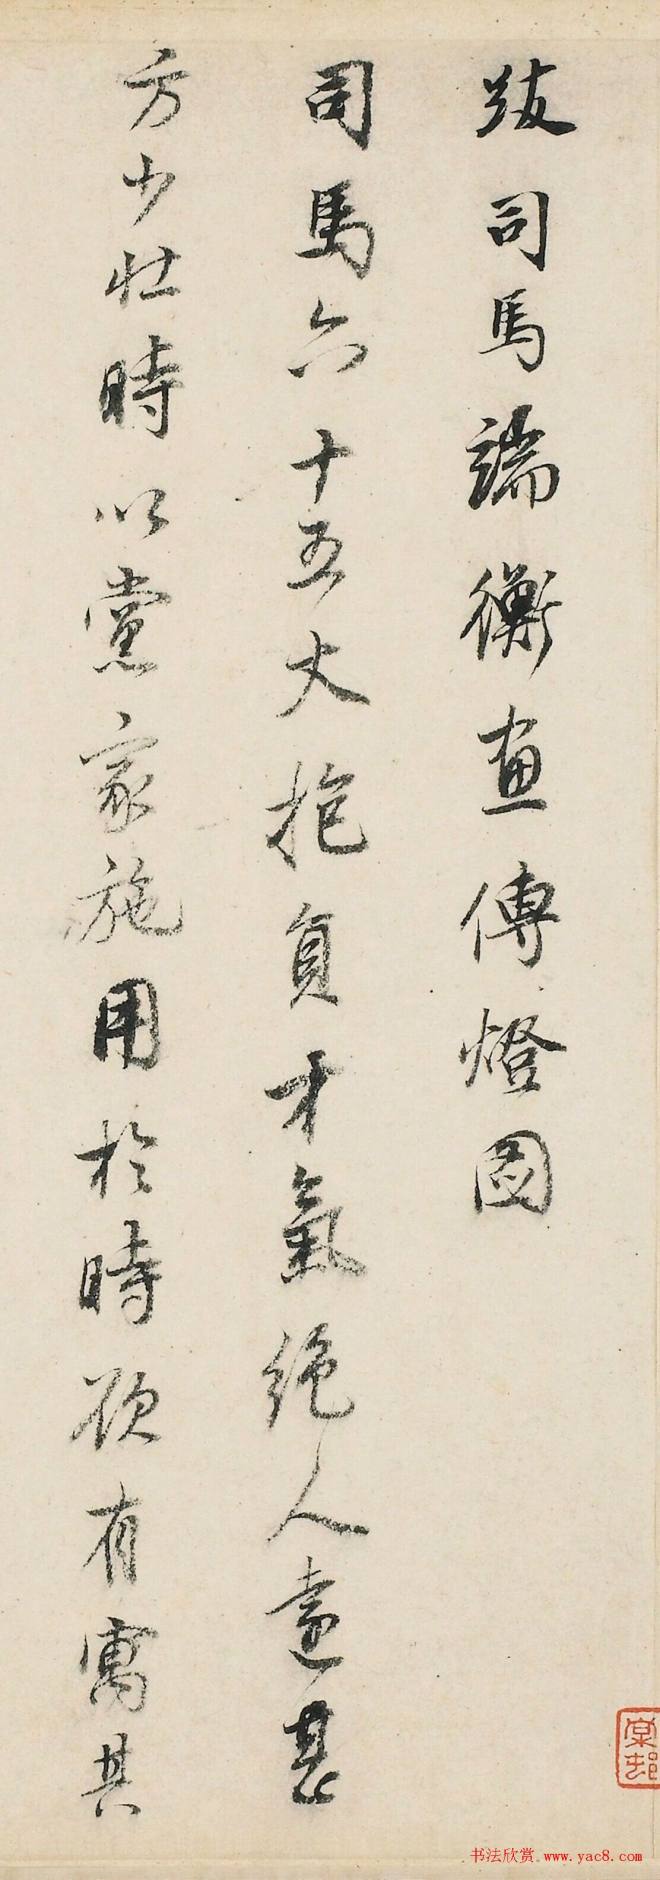 跋司馬端衡畫傳燈圖
司馬六十五丈抱負才氣絕人遠甚
方少壯時以黨家施用於時欲有寓其
棠邨
书法欣赏 www.yac8.com